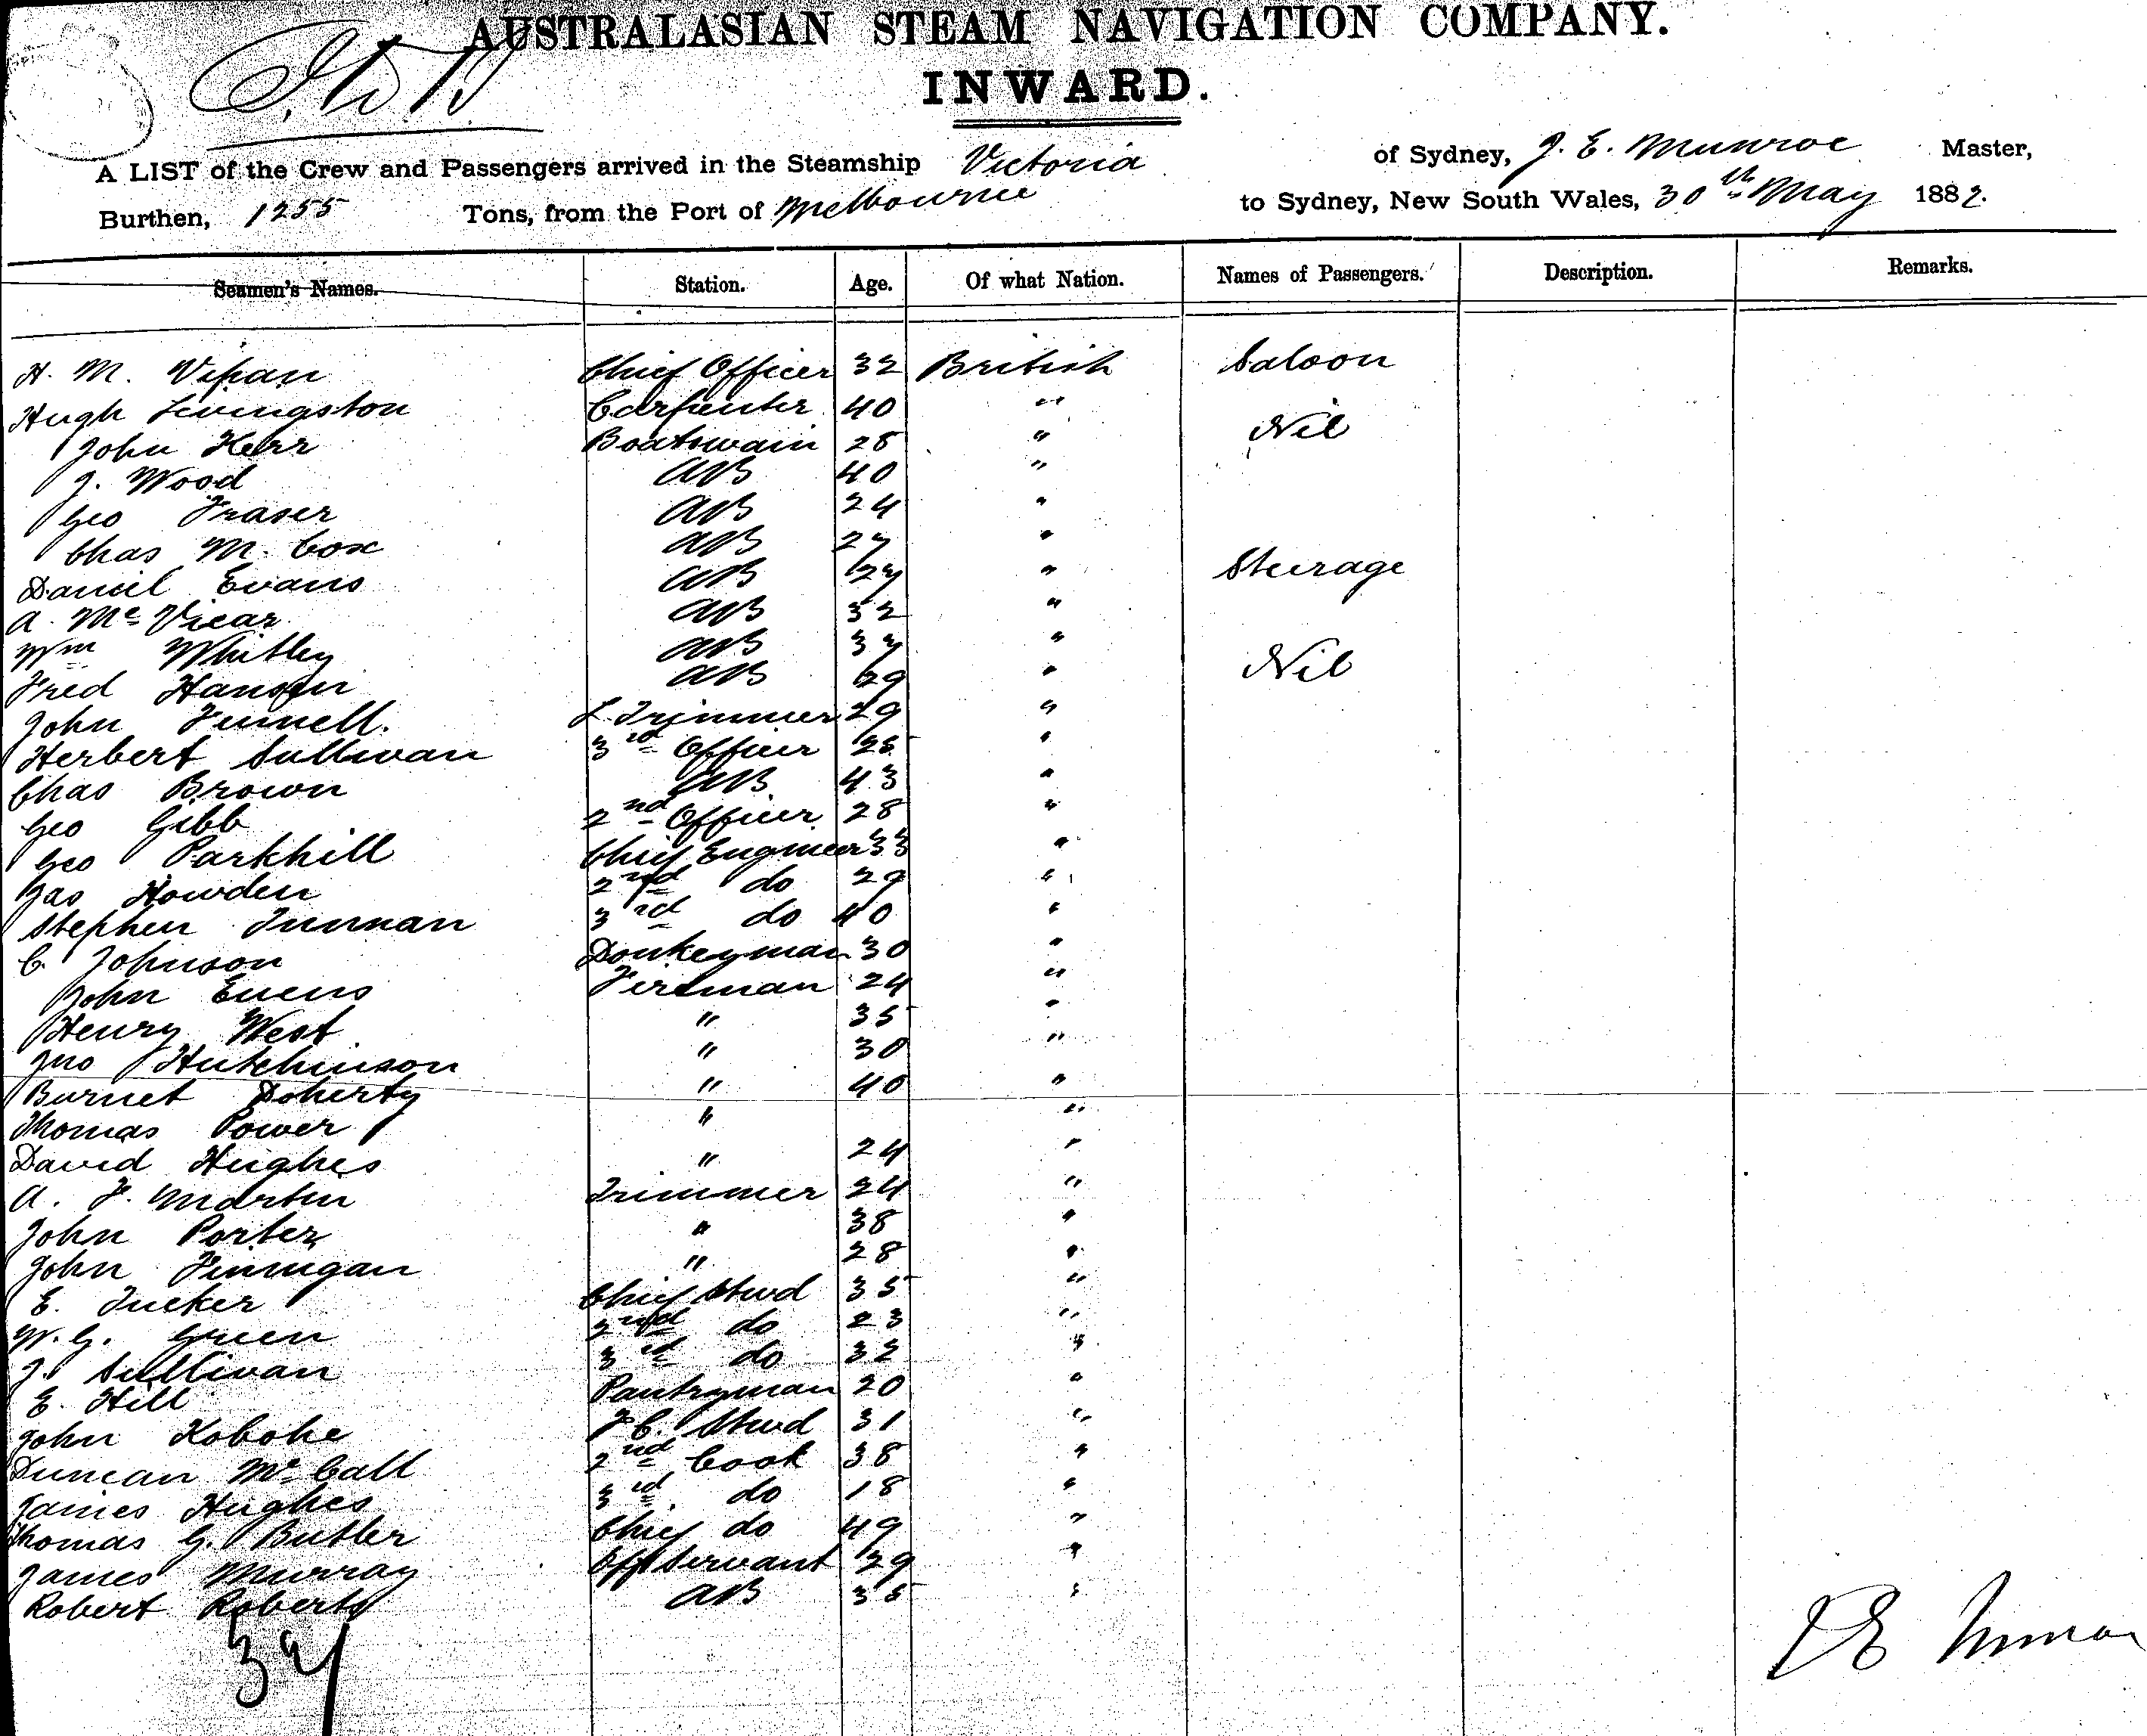 AUSTRALASIAN STEAM NAVIGATION COMPANY.
INWARD.
A LIST of the Crew and Passengers arrived in the Steamship Victoria of Sydney, J. E. Munroe Master,
Burthen, 1255 Tons, from the Port of Melbourne to Sydney, New South Wales, 30th May 1882.
Seamen's Names. Station. Age. Of what Nation. Names of Passengers. Description. Remarks.
H. M. Vipan Chief Officer 32 British Saloon
Hugh Livingston Carpenter 40 "
John Kerr Boatswain 28 " Nil
J. Wood AB 40 "
Geo Fraser AB 24 "
Chas M. Cox AB 27 "
Daniel Evans AB 27 " Steerage
A. Mc Vicar AB 32 "
Wm Whitley AB 37 "
Fred Hansen AB 29 " Nil
John Funnell. L Trimmer 29 "
Herbert Sullivan 3rd Officer 25 "
Chas Brown AB 43 "
Geo Gibb 2nd Officer 28 "
Geo Parkhill Chief Engineer 33 "
Jas Howden 2nd do 29 "
Stephen 3rd do 40 "
C. Johnson Donkeyman 30 "
John Evens Fireman 24 "
Henry West " 35 "
Jno Hutchinson " 30 "
Burnet Doherty " 40 "
Thomas Power " "
David Hughes " 24 "
A. F. Martin Trimmer 24 "
John Porter " 38 "
John Finnigan " 28 "
E. Tucker Chief Stwd 35 "
W. G. Green 2nd do 23 "
J. Sullivan 3rd do 32 "
E. Hill Pantryman 20 "
John Kobohe F C. Stwd 31 "
Duncan Mc Call 2nd Cook 38 "
James Hughes 3rd do 18 "
Thomas G. Butler Chief do 49 "
James Murray Off Servant 29 "
Robert Roberts AB 35 "
37